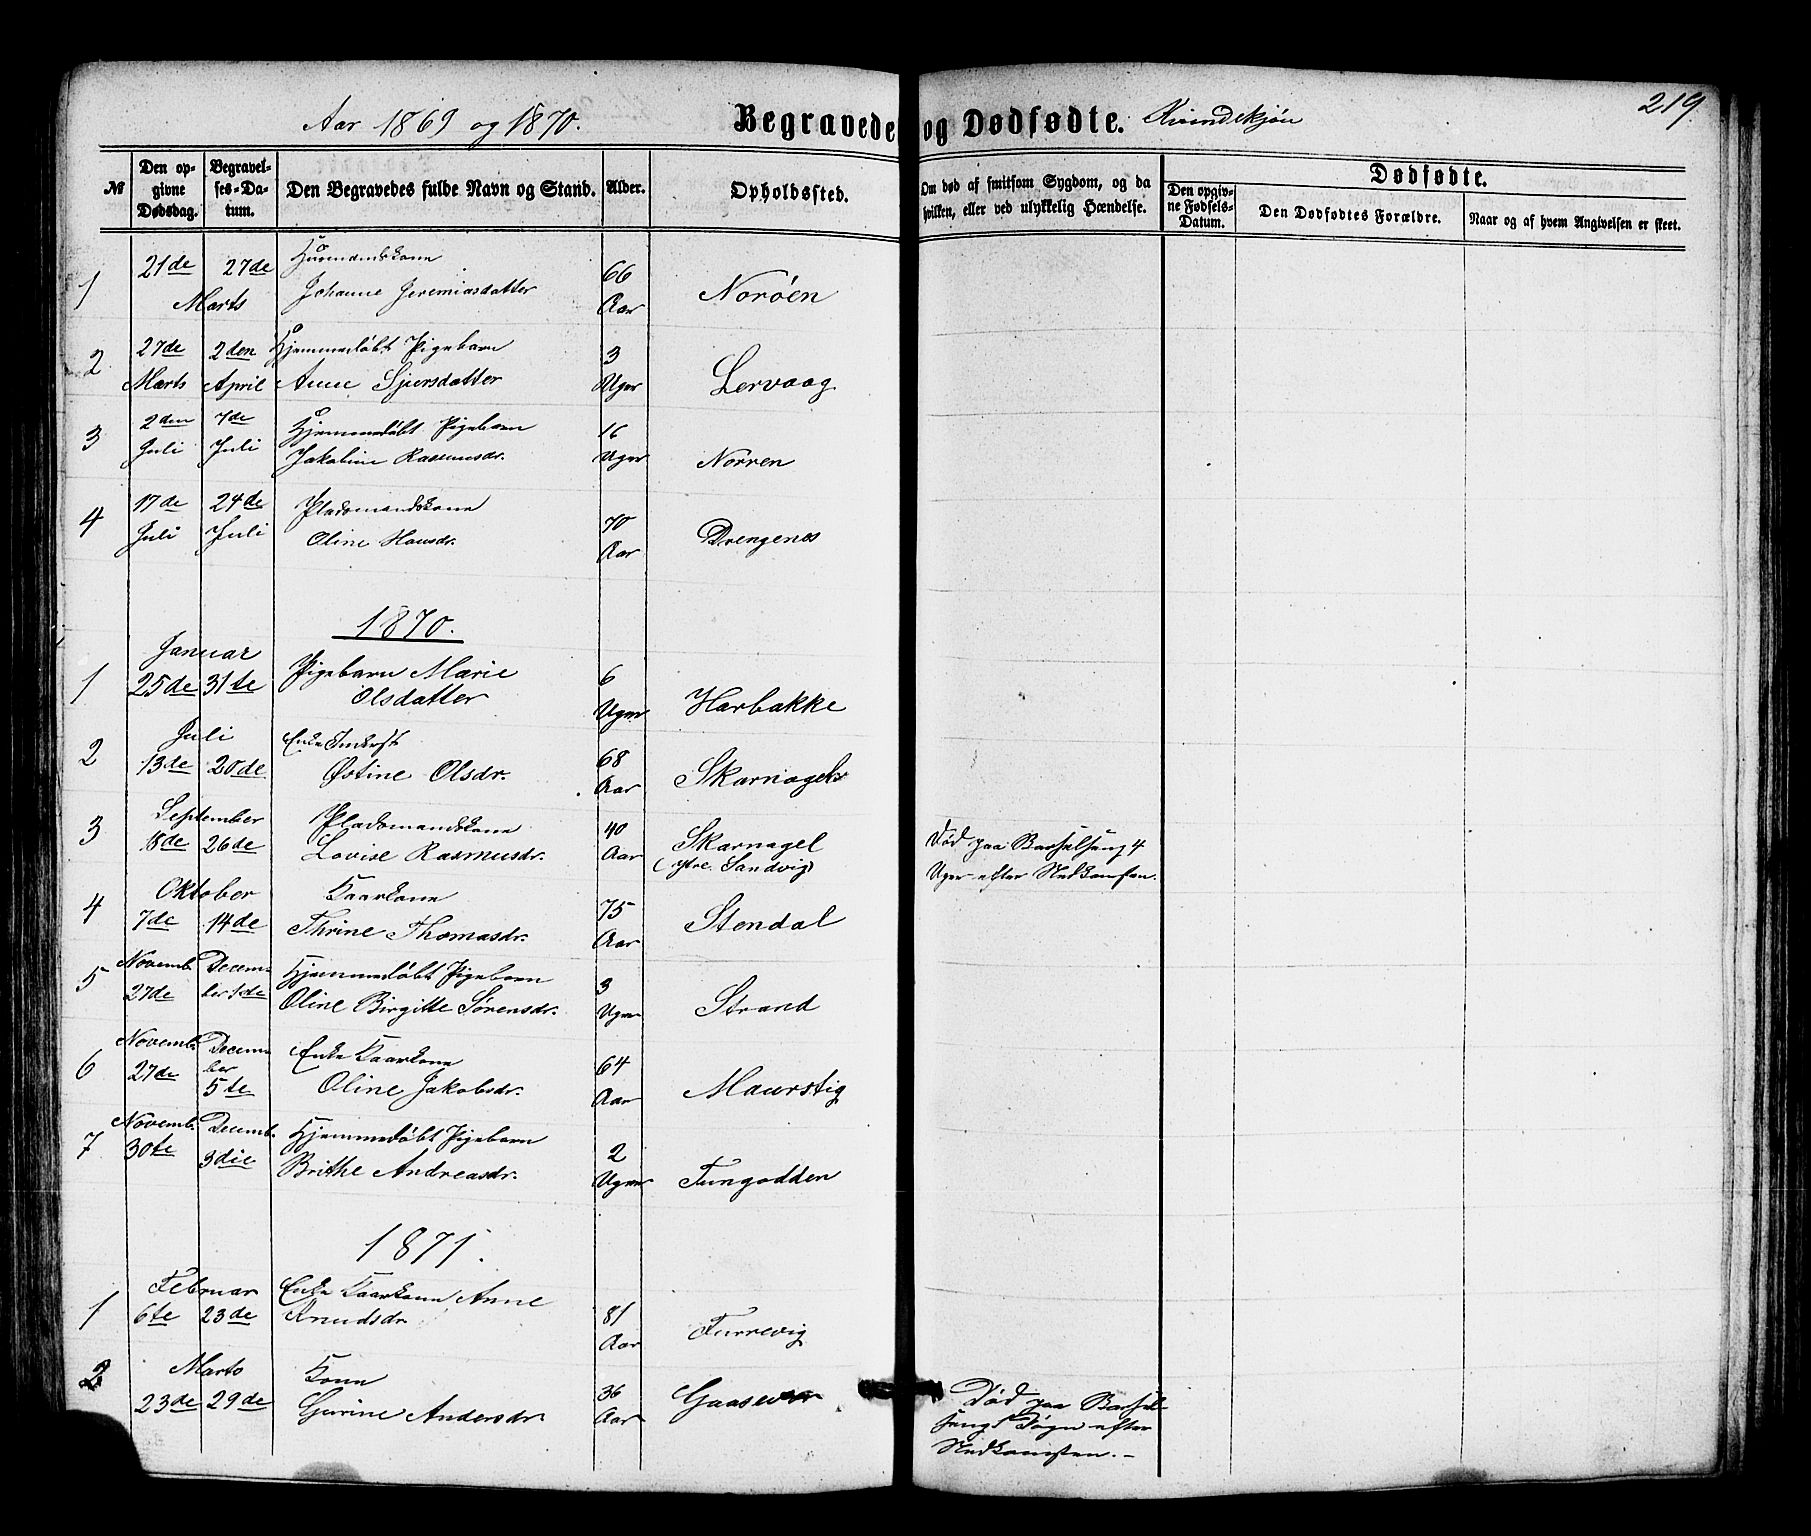 Aar 1869 og 1870.
Begravede og Dødfødte.
Kvindekjøn
219
№
Den opgivne Dødsdag.
Begravelses-Datum.
Den Begravedes fulde Navn og Stand.
Alder.
Opholdssted.
Om død af smitsom Sygdom, og da hvilken, eller ved ulykkelig Hændelse.
Dødfødte.
Den opgivne Fødsels-Datum.
Den Dødfødtes Forældre.
Naar og af hvem Angivelsen er skeet.
1
21de 27de
Marts
Huusmandskone
Johanne Jeremiasdatter
66
Aar
Norøen
2
27de 2den
Marts April
Hjemmedøbt Pigebarn
Anne Sjursdatter
3
Uger
Lervaag
3
2den 7de
Juli Juli
Hjemmedøbt Pigebarn
Jakobine Rasmusdr.
16
Uger
Norren
4
17de 24de
Juli Juli
Pladsmandskone
Oline Hansdr.
70
Aar
Drengenes
1870.
1
Januar
25de 31te
Pigebarn Marie
Olsdatter
6
Uger
Harbakke
2
Juli
13de 20de
Enke
Østine Olsdr.
68
Aar
Skarnagel
3
September
18de 26de
Pladsmandskone
Lovise Rasmusdr.
40
Aar
Skarnagel
(ytre Sandvig)
Død paa Barselseng 4
Uger efter Nedkomsten.
4
Oktober
7de 14de
Kaarkone
Thrine Thomasdr.
75
Aar
Stendal
5
Novemb. Decem-
27de ber 1ste
Hjemmedøbt Pigebarn
Oline Birgitte Sørensdr.
3
Uger
Strand
6
Novemb. Decem-
ber
27de 5te
Enke Kaarkone
Oline Jakobsdr.
64
Aar
Maurstig
7
Novemb. Decemb.
30te 3die
Hjemmedøbt Pigebarn
Brithe Andreasdr.
2
Uger
Tungodden
1871.
1
Februar
6te 23de
Enke Kaarkone Anne
Knudsdr.
81
Aar
Furrevig
2
Marts
23de 29de
Kone
Gurine Andersdr.
36
Aar
Død paa Barsel-
seng 1 Døgn efter
Nedkomsten.-